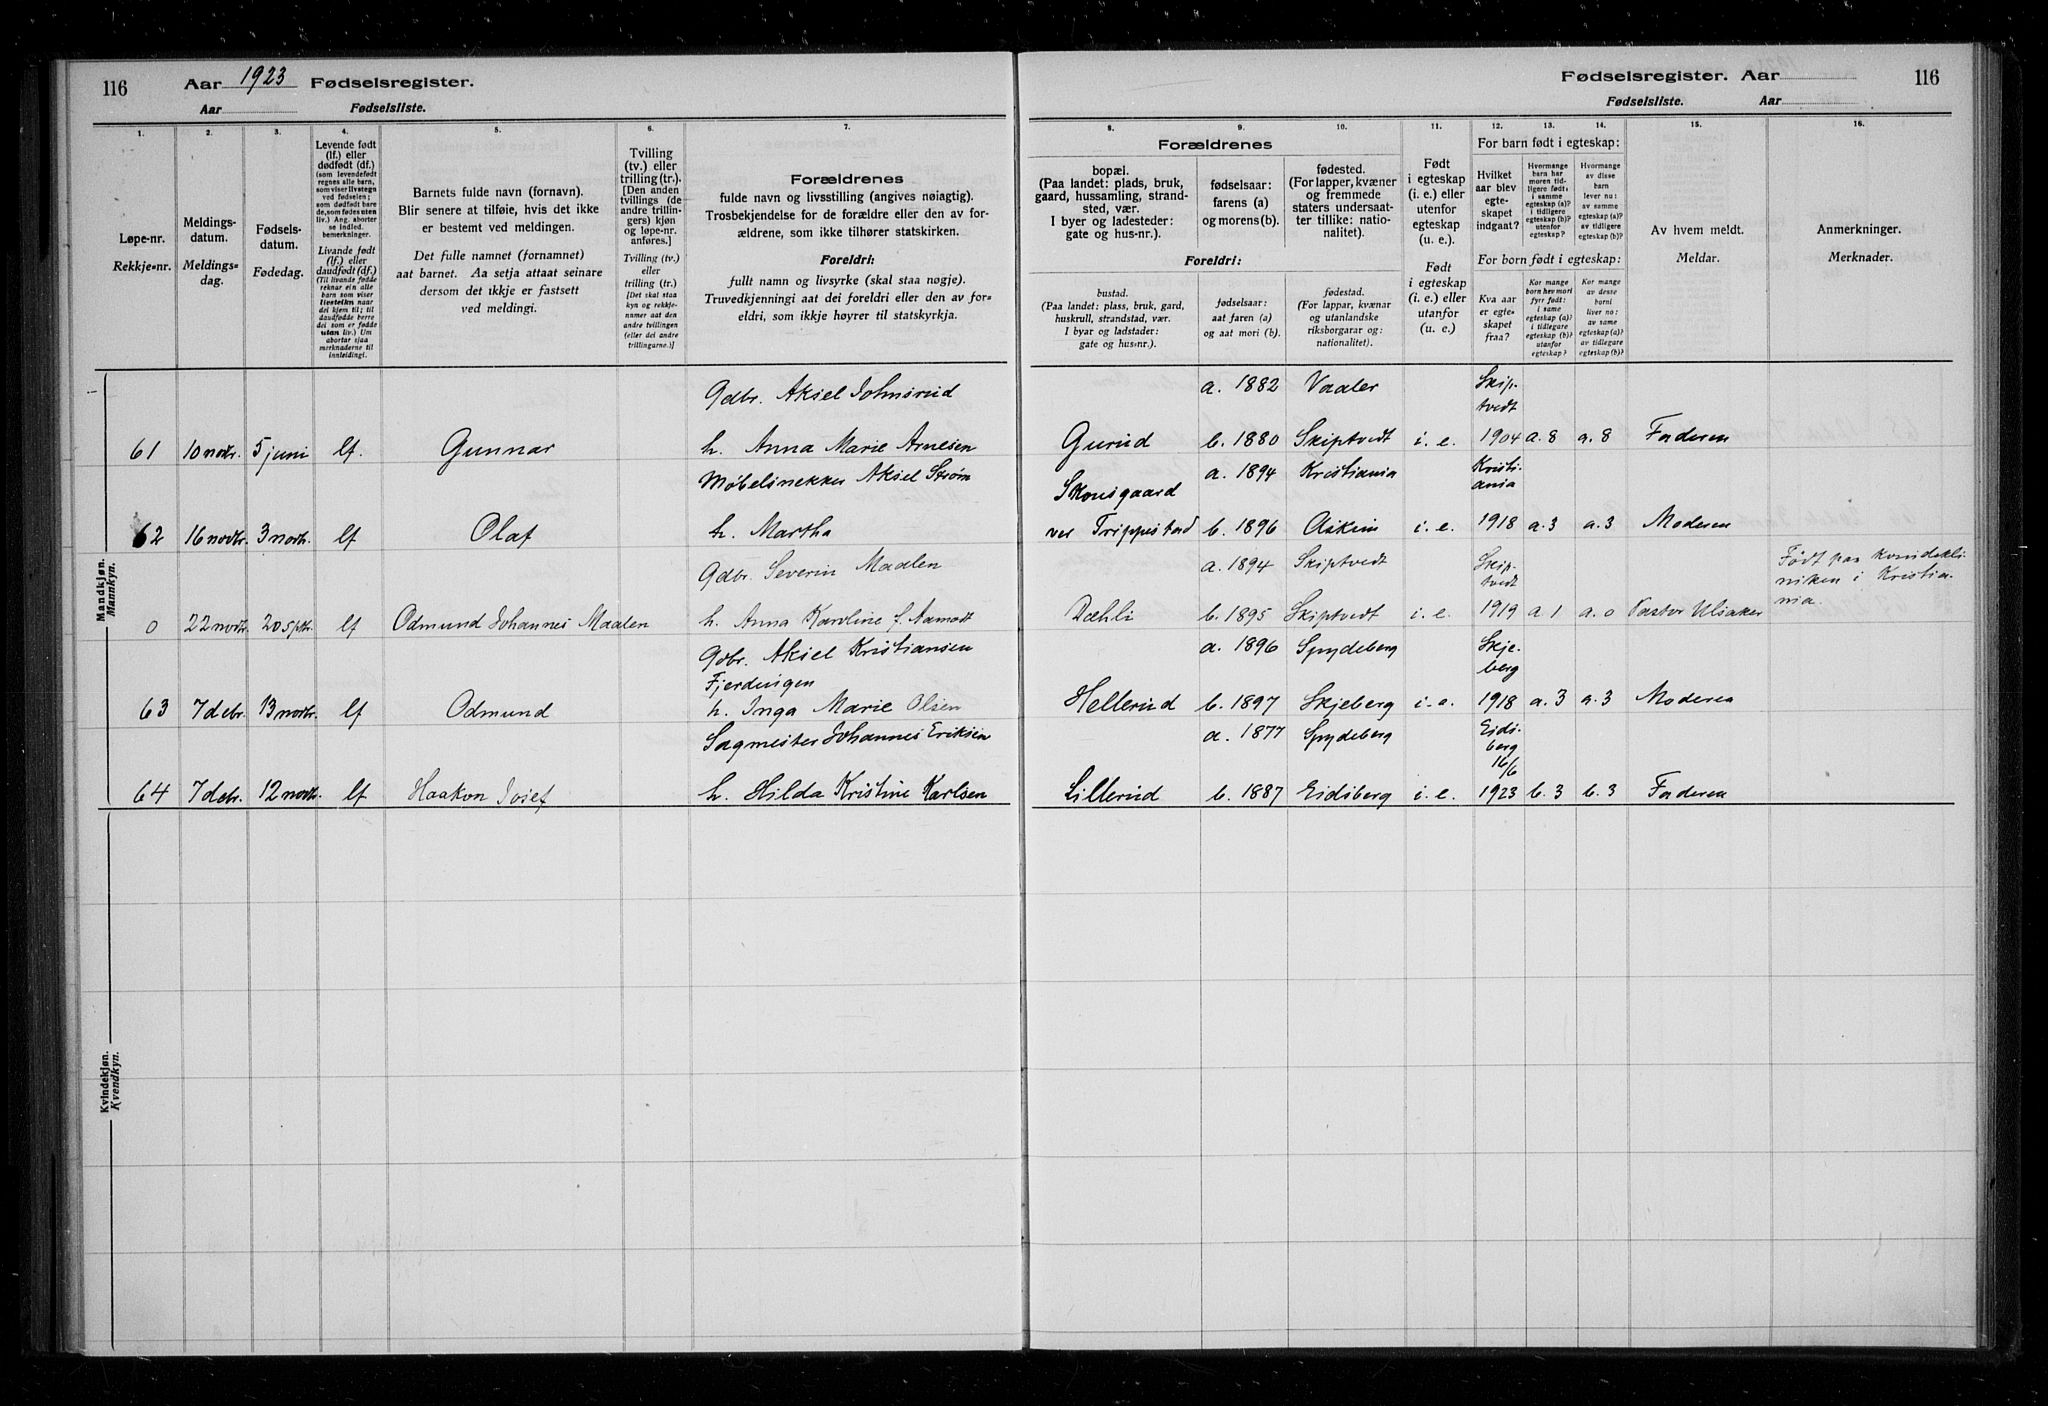 116
Aar 1923 Fødselsregister.
Aar Fødselsliste.
1.
2.
3.
4.
5.
6.
7.
Løpe-nr.
Rekkje-nr.
Meldings-
datum.
Meldings-
dag.
Fødsels-
datum.
Fødedag.
Levende født
(lf.) eller
dødfødt (df.)
(som levendefødt
regnes alle barn,
som viser livstegn
ved fødselen;
som dødfødt bar-
de, som fødes uten
liv.) Ang. aborter
se indled.
bemerkninger.
Livande født
(lf.) eller
daudfødt (df.)
(Til livande fødde
reknar ein alle
barn som viser
livsteikn naar
dei kjem til; til
daudfødde berre
dei som er fødde
utan liv.) Um
abortar sjaa
merknaderne til
innleidingi.
Barnets fulde navn (fornavn).
Blir senere at tilføie, hvis det ikke
er bestemt ved meldingen.
Det fulle namnet (fornamnet)
aat barnet. Aa setja attaat seinare
dersom det ikkje er fastsett
ved meldingi.
Tvilling
(tv.) eller
trilling (tr.)
[Den anden
tvillings (de
andre trillin-
gers) kjøn
og løpe-nr.
anføres.]
Tvilling (tv.)
eller
trilling (tr.)
[Det skal staa
kyn og rekkje-
nummer aat den
andre tvillingen
(eller dei andre
trillingarne.)]
Forældrenes
fulde navn og livsstilling (angives nøiagtig).
Trosbekjendelse for de forældre eller den av for-
ældrene, som ikke tilhører statskirken.
Foreldri:
fullt namn og livsyrke (skal staa nøgje).
Truvedkjenningi aat dei foreldri eller den av for-
eldri, som ikkje høyrer til statskyrkja.
Mandkjøn.
Mannkyn.
Gdbr. Aksel Johnsrud
61 10 novbr. 5 juni lf. Gunnar h. Anna Marie Arnesen
Møbelsnekker Aksel Strøm
62 16 novbr. 3 novbr. lf Olaf h. Martha
Gdbr. Severin Maalen
0 22 novbr. 20 sptbr. lf Odmund Johannes Maalen h. Anna Karoline f. Aamodt
Gdbr. Aksel Kristiansen
Fjerdingen
63 7 debr. 13 novbr. lf Odmund h. Inga Marie Olsen
Sagmester Johannes Eriksen
64 7 debr. 12 novbr. lf Haakon Josef h. Hilda Kristine Karlsen
Kvindekjøn.
Kvendkyn.
Fødselsregister. Aar 116
Fødselsliste. Aar
8.
9.
10.
11.
12.
13.
14.
15.
16.
Forældrenes
bopæl.
(Paa landet: plads, bruk,
gaard, hussamling, strand-
sted, vær.
I byer og ladesteder:
gate og hus-nr.).
fødselsaar:
farens (a)
og morens (b).
fødested.
(For lapper, kvæner
og fremmede
staters undersaat-
ter tillike: natio-
nalitet).
Foreldri:
bustad.
(Paa landet: plass, bruk, gard,
huskrull, strandstad, vær.
I byar og ladstader:
gate og hus-nr.).
fødselsaar:
aat faren (a)
og aat mori (b).
fødestad.
(For lappar, kvænar
og utanlandske
riksborgarar og:
nationalitet).
Født
i egteskap
(i. e.) eller
utenfor
egteskap
(u. e.).
Født
i egteskap
(i. e.) eller
utanfor
(u. e.).
For barn født i egteskap:
Hvilket
aar blev
egte-
skapet
indgaat?
Hvormange
barn har
moren tid-
ligere født:
i samme
egteskap (a)?
i tidligere
egteskap (b)?
utenfor
egteskap?
Hvormange
av disse
barn
lever nu:
av samme
egteskap (a)?
av tidligere
egteskap (b)?
For born født i egteskap:
Kva aar
er egte-
skapet
fraa?
Kor mange
born hev mori
fyrr født:
i same
egteskap (a)?
i tidlegare
egteskap (b)?
utanfor
egteskap?
Kor mange
av desse
borni
liver no:
av same
egteskap (a)?
av tidlegare
egteskap (b)?
Av hvem meldt.
Meldar.
Anmerkninger.
Merknader.
a. 1882 Vaaler Skip-
tvedt
Gurud b. 1880 Skiptvedt i. e. 1904 a. 8 a. 8 Faderen
a. 1894 Kristiania Kristi-
ania
Skousgaard
ver Trippestad b. 1896 Askim i. e. 1918 a. 3 a. 3 Moderen
a. 1894 Skiptvedt Skip-
tvedt
Født paa kvindekli-
niken i Kristia-
nia.
Dæhli b. 1895 Skiptvedt i. e. 1919 a 1 a. 0 Pastor Ulsaker
a. 1896 Spydeberg Skje-
berg
Hellerud b. 1897 Skjeberg i. e. 1918 a. 3 a. 3 Moderen
a. 1877 Spydeberg Eids-
berg
16/6
Lillerud b. 1887 Eidsberg i. e. 1923 b. 3 b. 3 Faderen